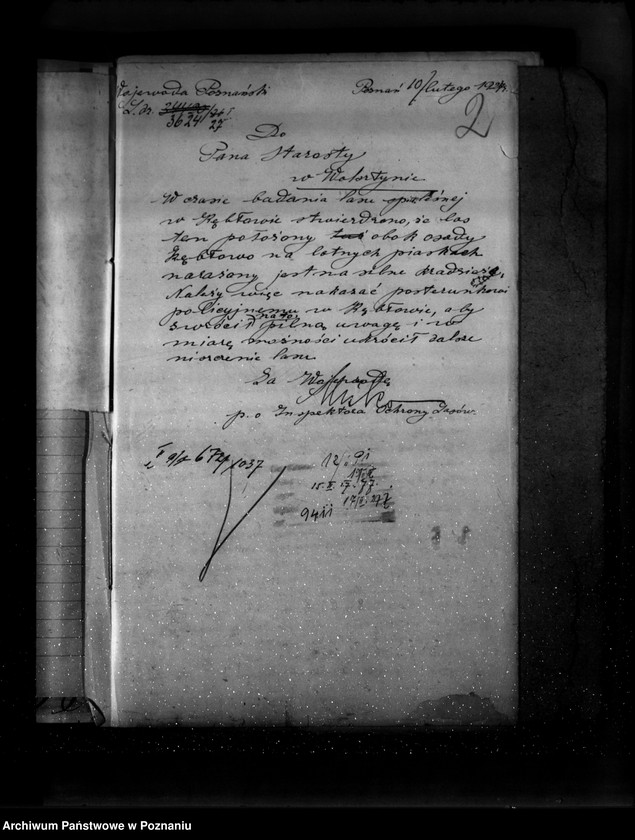 Wojewoda Poznański Poznań 10/lutego 1927r.
L.dz. 3624/27 I.
2
Do
Pana Starosty
w Wolsztynie
W czasie badania lasu spółdzielnej
w Kębłowie stwierdzono, że las
ten położony obok osady
Kębłowo na lotnych piaskach
narażony jest na silne kradzieże.
Należy więc nakazać posterunkowi
policyjnemu w Kębłowie, aby
zwrócił na las pilną uwagę i w
miarę możności ukrócił dalsze
niszczenie lasu.
Za Wojewodę
p. o Inspektora Ochrony Lasów.
1037
12/
17
94 II
Archiwum Państwowe w Poznaniu